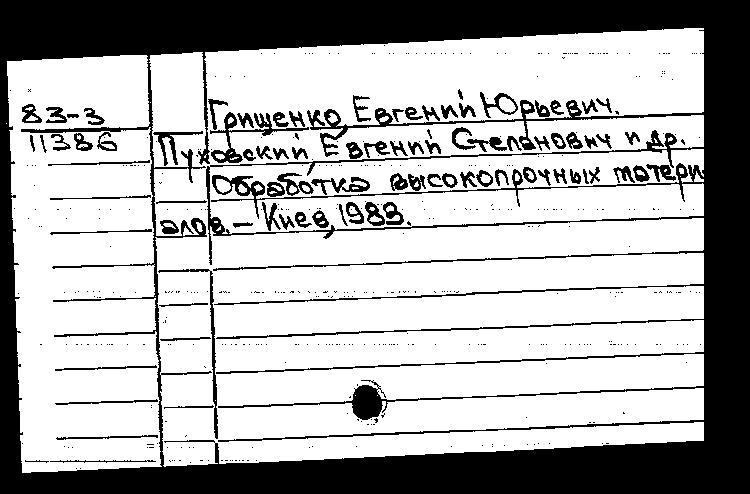 83-3
11386
Грищенко, Евгений Юрьевич.
Пуховский, Евгений Степанович и др.
Обработка высокопрочных матери
алов. – Киев, 1983.